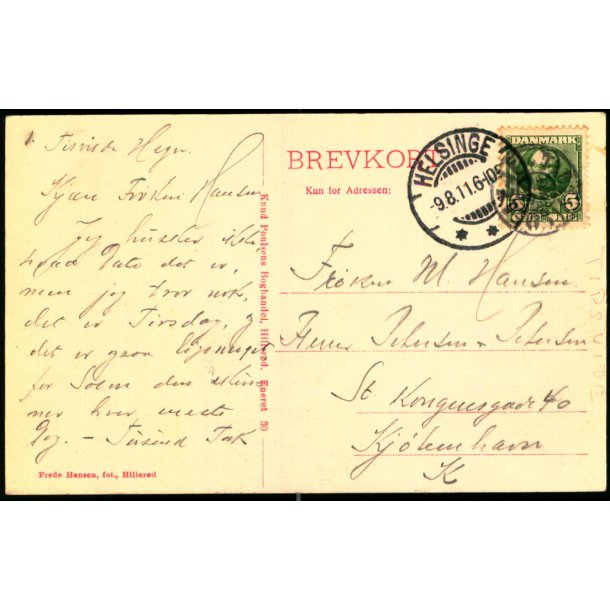 Tisvilde Hegn.
Kjære Frøken Hansen
Jeg husker ikke
hvad Dato det er,
men jeg tror nok,
det er Tirsdag, og
det er
for Solen den skin
ner hver eneste
Dag. – Tusind Tak
Frede Hansen, fot., Hillerød
Knud Poulsens Boghandel, Hillerød. Eneret 30
BREVKORT
Kun for Adressen:
HELSINGE
-9.8.11.6-10E
DANMARK
5 5
Frøken M. Hansen
Herrer Petersen & Petersen
St Kongensgade 40
Kjøbenhavn
K